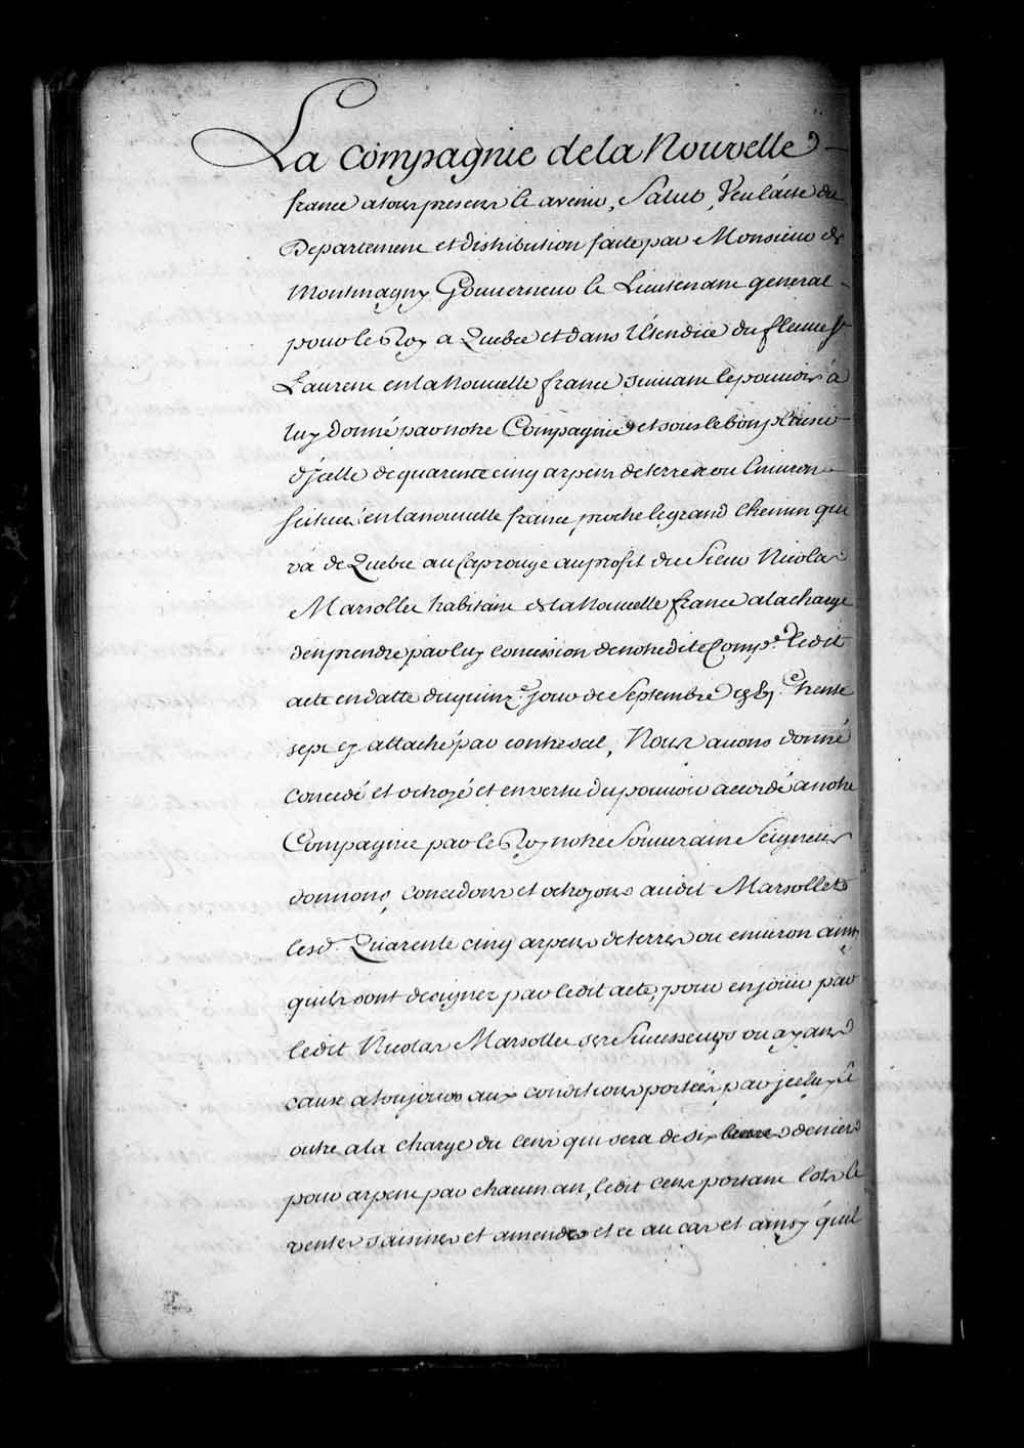 La Compagnie dela Nouvelle
france atous presens & avenir, Salut, Veu lacte du
Departement et distribution faite par Monsieur de
Montmagny Gouverneur & Lieutenant general
pour le Roy a Quebec et dans l'Etendue du fleuve St
Laurent en la Nouvelle france suivant le pouvoir a
luy donné par notre Compagnie et sous le bon plaisir
d'jcelle de quarente cinq arpens de terre ou Environ
scituez en la nouvelle france proche le grand Chemin qui
va de Quebec au Cap rouge au profit du Sieur Nicolas
Marsollet habitant de la Nouvelle france a la charge
d'en prendre par luy concession de notredite Compe. ledit
acte en datte du quinze. jour de Septembre trente
sept cy attaché par contrescel, Nous avons donné
concedé et octroyé et en vertu du pouvoir accordé a notre
Compagnie par le Roy notre Souverain Seigneur
donnons, concedons et octroyons audit Marsollet
lesd. Quarente cinq arpens de terres ou environ ainsy
quils sont designez par ledit acte, pour en jouir par
ledit Nicolas Marsollet ses Successeurs ou ayans
cause a toujours aux conditions portées par jceluy &
outre a la charge du cens qui sera de six deniers
pour arpent par chacun an, ledit cens portant lots &
ventes saisines et amendes et ce au cas et ainsy quil